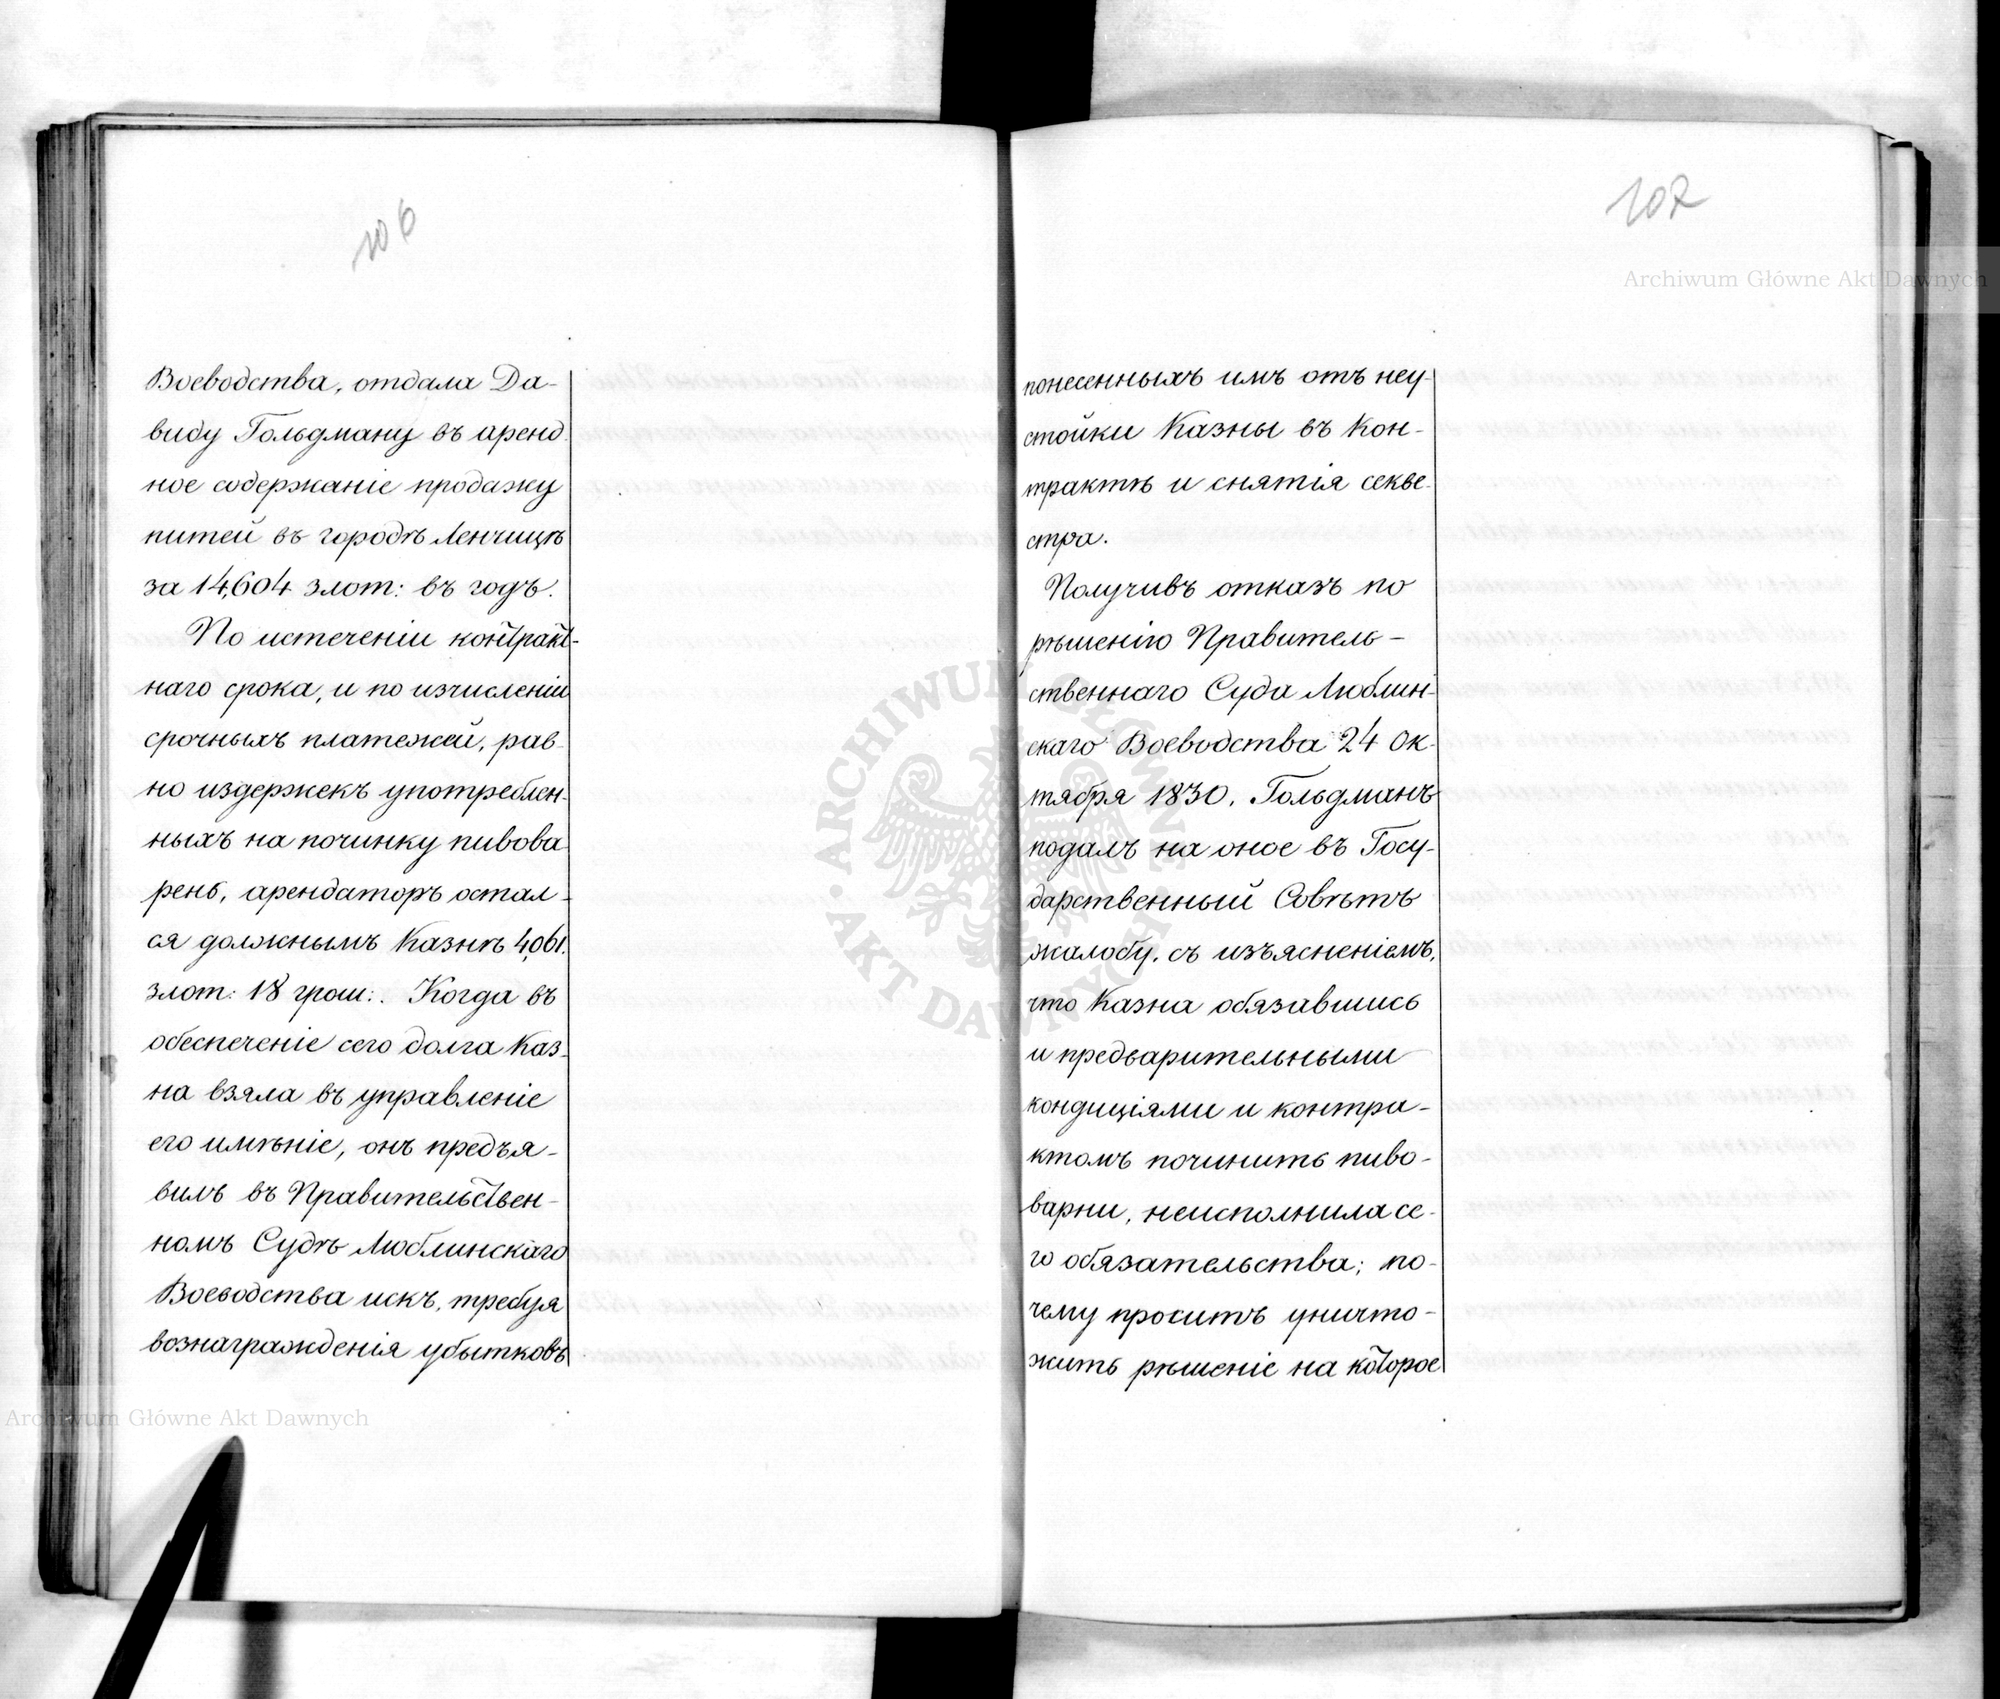 106
Воеводства, отдала Да-
виду Гольдману въ аренд
ное содержаніе продажу
питей въ городѣ Ленчицѣ
за 14,604 злот: въ годъ.
По истеченіи контракт-
наго срока, и по изчисленіи
срочныхъ платежей, рав-
но издержекъ употреблен-
ныхъ на починку пивова
рень, арендаторъ остал-
ся должнымъ Казнѣ 4,061.
злот: 18 грош:. Когда въ
обеспеченіе сего долга Каз-
на взяла въ управленіе
его имѣніе, онъ предъя-
вилъ въ Правительствен-
номъ Судѣ Люблинскаго
Воеводства искъ, требуя
вознагражденія убытковъ
107
понесенныхъ имъ отъ неу-
стойки Казны въ Кон-
трактѣ и снятія секве-
стра.
Получивъ отказъ по
рѣшенію Правитель-
ственнаго Суда Люблин-
скаго Воеводства 24 Ок-
тября 1830, Гольдманъ
подалъ на оное въ Госу-
дарственный Совѣтъ
жалобу, съ изъясненіемъ,
что Казна обязавшись
и предварительными
кондиціями и контра-
ктомъ починить пиво-
варни, неисполнила се-
го обязательства; по-
чему проситъ уничто-
жить рѣшеніе на которое
Archiwum Główne Akt Dawnych
Archiwum Główne Akt Dawnych
ARCHIWUM GŁÓWNE · AKT DAWNYCH ·